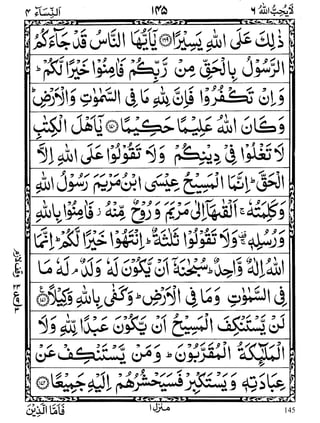 لَا يُحِبُّ اللّٰهُ ٦ ١٤٥ اَلنِّسَآء ٤
ذٰلِكَ عَلَى اللّٰهِ يَسِيْرًا ﴿١٦٩﴾ يٰٓاَيُّهَا النَّاسُ قَدْ جَآءَكُمُ
الرَّسُوْلُ بِالْحَقِّ مِنْ رَّبِّكُمْ فَاٰمِنُوْا خَيْرًا لَّكُمْ ؕ
وَاِنْ تَكْفُرُوْا فَاِنَّ لِلّٰهِ مَا فِى السَّمٰوٰتِ وَالْاَرْضِ ؕ
وَكَانَ اللّٰهُ عَلِيْمًا حَكِيْمًا ﴿١٧٠﴾ يٰٓاَهْلَ الْكِتٰبِ
لَا تَغْلُوْا فِىْ دِيْنِكُمْ وَلَا تَقُوْلُوْا عَلَى اللّٰهِ اِلَّا
الْحَقَّ ؕ اِنَّمَا الْمَسِيْحُ عِيْسَى ابْنُ مَرْيَمَ رَسُوْلُ اللّٰهِ
وَكَلِمَتُهٗ ۚ اَلْقٰىهَآ اِلٰى مَرْيَمَ وَرُوْحٌ مِّنْهُ ؗ فَاٰمِنُوْا بِاللّٰهِ
وَرُسُلِهٖ ۚ وَلَا تَقُوْلُوْا ثَلٰثَةٌ ؕ اِنْتَهُوْا خَيْرًا لَّكُمْ ؕ اِنَّمَا
اللّٰهُ اِلٰهٌ وَّاحِدٌ ؕ سُبْحٰنَهٗٓ اَنْ يَّكُوْنَ لَهٗ وَلَدٌ ۘ لَهٗ مَا
فِى السَّمٰوٰتِ وَمَا فِى الْاَرْضِ ؕ وَكَفٰى بِاللّٰهِ وَكِيْلًا ﴿١٧١﴾
لَنْ يَّسْتَنْكِفَ الْمَسِيْحُ اَنْ يَّكُوْنَ عَبْدًا لِّلّٰهِ وَلَا
الْمَلٰٓئِكَةُ الْمُقَرَّبُوْنَ ؕ وَمَنْ يَّسْتَنْكِفْ عَنْ
عِبَادَتِهٖ وَيَسْتَكْبِرْ فَسَيَحْشُرُهُمْ اِلَيْهِ جَمِيْعًا ﴿١٧٢﴾
فَاَمَّا الَّذِيْنَ منزل ١ 145